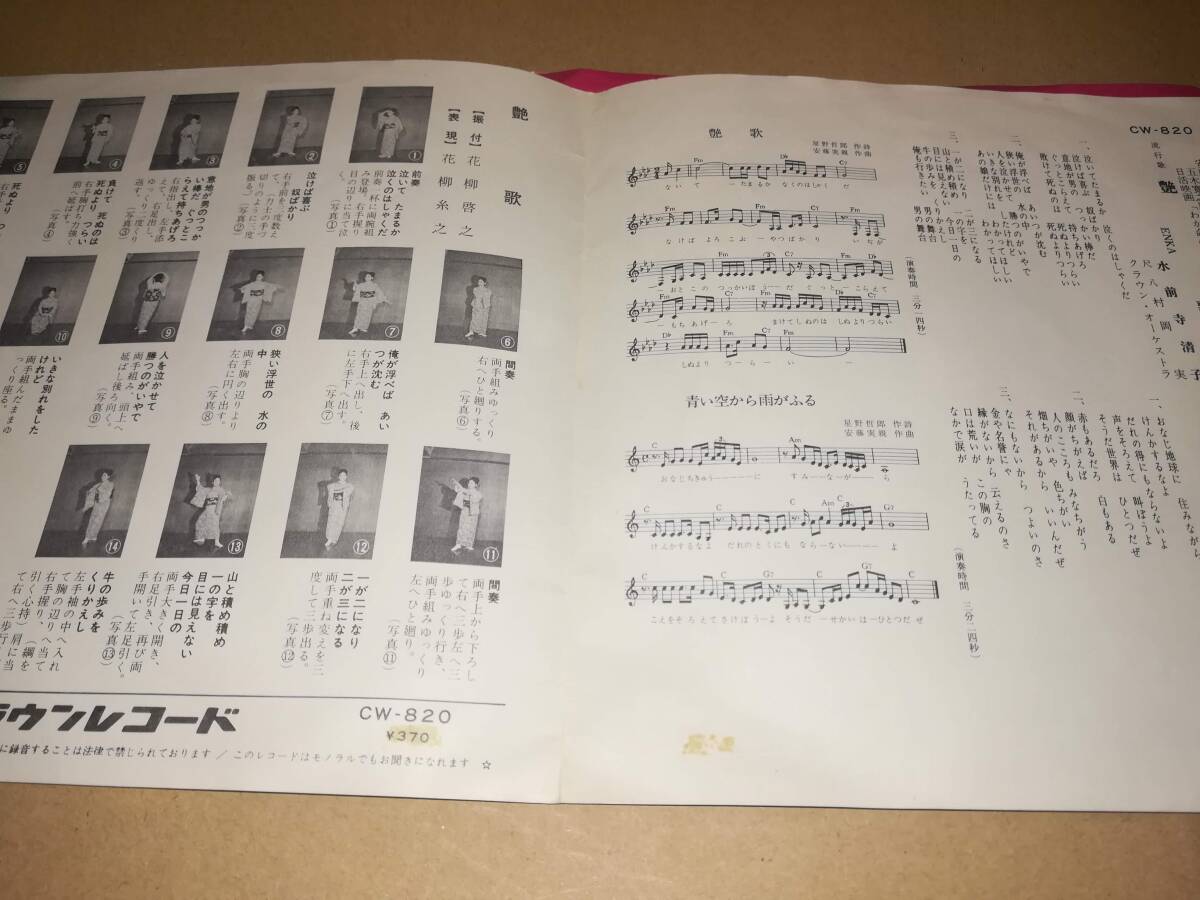 CW-820
流行歌
艶
ENKA
水前寺清子
尺八 村岡 実
クラウン・オーケストラ
一、泣いてたまるか 泣くのはしゃくだ
泣けば喜ぶ 奴ばかり
意地が男の つっかい棒だ
ぐっとこらえて 持ちあげろ
敗けて死ぬのは 死ぬよりつらい
死ぬよりつらい
二、俺が浮べば あいつが沈む
狭い浮世の 水の中
人を泣かせて 勝つのがいやで
いきな別れを したけれど
あの娘だけには わかってほしい
わかってほしい
三、一が二になり 二が三になる
山と積め積め 一の字を
目には見えない 今日一日の
牛の歩みを くりかえし
俺も行きたい 男の舞台
男の舞台
(演奏時間 三分一四秒)
一、おなじ地球に 住みながら
けんかするなよ
だれの得にもならないよ
声をそろえて 叫ぼうよ
そうだ世界は ひとつだぜ
二、赤もあるだろ 白もある
顔がちがえば みなちがう
人のこころも いいんだぜ
畑ちがいや 色ちがい
それがあるから つよいのさ
三、なにもないから 云えるのさ
金や名誉にゃ
縁がないから この胸の
口は荒いが うたってる
なかで涙が
(演奏時間 三分二四秒)
艶歌
星野哲郎 作詩
安藤実親 作曲
Fm Db C7
ないて—たまるか なくのはしゃくだ
なけば よろこぶ—やつばかり いじが
—おとこの つっかいぼう—だ ぐっと—こらえて
—もちあげ—ろ まけてしぬのは しぬよりつらい
しぬより つーらーいー
青い空から雨がふる
星野哲郎 作詩
安藤実親 作曲
おなじちきゅう————に すみーなーがーら
けんかするなよ だれのとくにも ならーない——よ
こえをそろえてさけぼうーよ そうだーせかいはーひとつだぜ
艶歌
【振付】花柳啓之
【表現】花柳糸之
①
前奏
泣いて たまるか
泣くのはしゃくだ
前奏一杯に両腕組
み登場、右手握り
目の辺りに当て泣
く。 (写真①)
②
泣けば喜ぶ
奴ばかり
右手前を二度数え
て、「力士の手づ
切りのように三度
振る。」(写真②)
③
意地が男のつっか
い棒だ ぐっとこ
らえて持ちあげろ
右指出し、左手添
え、右足出し、
ゆっくり二度くり
返す。 (写真③)
④
負けて 死ぬのは
死ぬより つらい
右手胸打ち力強く
前へ延ばす。
(写真④)
⑤
死ぬより つらい
⑥
間奏
両手組みゆっくり
右へひと廻りする。
(写真⑥)
⑦
俺が浮べば あい
つが沈む
右手上へ出し、後
に左手下へ出す。
(写真⑦)
⑧
狭い浮世の 水の
中
両手胸の辺りより
左右に円く出す。
(写真⑧)
⑨
人を泣かせて
勝つのがいやで
両手組み、頭上へ
延ばし後ろ向く。
(写真⑨)
⑩
いきな別れをした
けれど
両手組んだままゆ
っくり座る。
⑪
間奏
両手上から下ろし
て右へ三歩左へ三
歩ゆっくり行き、
両手組みゆっくり
左へひと廻り。
(写真⑪)
⑫
一が二になり
二が三になる
両手重ね変えを三
度して三歩出る。
(写真⑫)
⑬
山と積め積め
一の字を
目には見えない
今日一日の
両手大きく開き、
右足引き、再び両
手開いて左足引く。
(写真⑬)
⑭
牛の歩みを
くりかえし
左手袖の中へ入れ
て胸の辺りへ当て
右手握り、(綱を
引く心持)肩に当
て右へ三歩行
ラウンレコード
CW-820
¥370
に録音することは法律で禁じられております / このレコードはモノラルでもお聞きになれます ☆